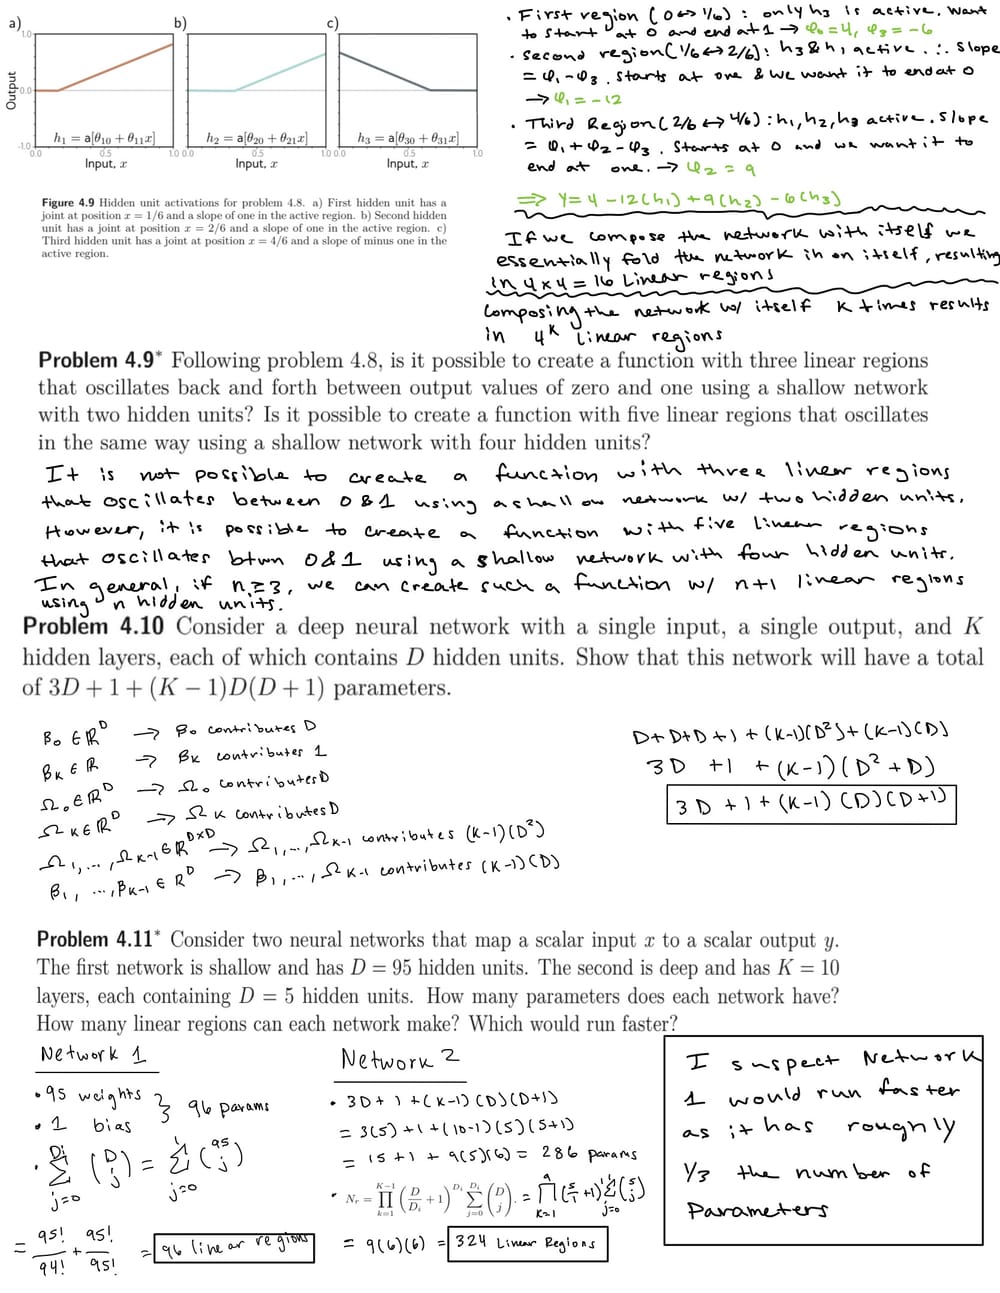 a)
b)
c)
1.0
0.0
-1.0
Output
h₁ = a[θ₁₀ + θ₁₁x]
h₂ = a[θ₂₀ + θ₂₁x]
h₃ = a[θ₃₀ + θ₃₁x]
0.0 0.5 1.0 0.0 0.5 1.0 0.0 0.5 1.0
Input, x
Input, x
Input, x
Figure 4.9 Hidden unit activations for problem 4.8. a) First hidden unit has a
joint at position x = 1/6 and a slope of one in the active region. b) Second hidden
unit has a joint at position x = 2/6 and a slope of one in the active region. c)
Third hidden unit has a joint at position x = 4/6 and a slope of minus one in the
active region.
• First region (0↔1/6): only h₃ is active. Want
to start at 0 and end at 1 → φ₀=4, φ₃=-6
• Second region (1/6↔2/6): h₃ & h₁ active. ∴ Slope
= φ₁-φ₃. Starts at one & we want it to end at 0
→ φ₁=-12
• Third Region (2/6↔4/6): h₁, h₂, h₃ active. Slope
= φ₁+φ₂-φ₃. Starts at 0 and we want it to
end at one. → φ₂=9
⇒ Y=4-12(h₁)+9(h₂)-6(h₃)
If we compose the network with itself we
essentially fold the network in on itself, resulting
in 4x4=16 Linear regions
Composing the network w/ itself K times results
in 4ᴷ linear regions
Problem 4.9* Following problem 4.8, is it possible to create a function with three linear regions
that oscillates back and forth between output values of zero and one using a shallow network
with two hidden units? Is it possible to create a function with five linear regions that oscillates
in the same way using a shallow network with four hidden units?
It is not possible to create a function with three linear regions
that oscillates between 0 & 1 using a shallow network w/ two hidden units.
However, it is possible to create a function with five linear regions
that oscillates btwn 0 & 1 using a shallow network with four hidden units.
In general, if n≥3, we can create such a function w/ n+1 linear regions
using n hidden units.
Problem 4.10 Consider a deep neural network with a single input, a single output, and K
hidden layers, each of which contains D hidden units. Show that this network will have a total
of 3D + 1 + (K − 1)D(D + 1) parameters.
β₀ ∈ ℝᴰ → β₀ contributes D
βₖ ∈ ℝ → βₖ contributes 1
Ω₀ ∈ ℝᴰ → Ω₀ contributes D
Ωₖ ∈ ℝᴰ → Ωₖ contributes D
Ω₁,...,Ωₖ₋₁ ∈ ℝᴰˣᴰ → Ω₁,...,Ωₖ₋₁ contributes (K-1)(D²)
β₁,...,βₖ₋₁ ∈ ℝᴰ → β₁,...,Ωₖ₋₁ contributes (K-1)(D)
D+D+D+1+(K-1)(D²)+(K-1)(D)
3D +1 +(K-1)(D²+D)
3D +1+(K-1)(D)(D+1)
Problem 4.11* Consider two neural networks that map a scalar input x to a scalar output y.
The first network is shallow and has D = 95 hidden units. The second is deep and has K = 10
layers, each containing D = 5 hidden units. How many parameters does each network have?
How many linear regions can each network make? Which would run faster?
Network 1
• 95 weights } 96 params
• 1 bias
• Σ_{j=0}^{Dᵢ} (D j) = Σ_{j=0}^{1} (95 j)
= 95!/94! + 95!/95! = 96 linear regions
Network 2
• 3D+1+(K-1)(D)(D+1)
= 3(5)+1+(10-1)(5)(5+1)
= 15+1+9(5)(6) = 286 params
• Nᵣ = ∏_{k=1}^{K-1} (D/Dᵢ + 1)^{Dᵢ} Σ_{j=0}^{Dᵢ} (D j). = ∏_{K=1}^{9} (5/1 +1)¹ Σ_{j=0}^{1} (5 j)
= 9(6)(6) = 324 Linear Regions
I suspect Network
1 would run faster
as it has roughly
1/3 the number of
Parameters